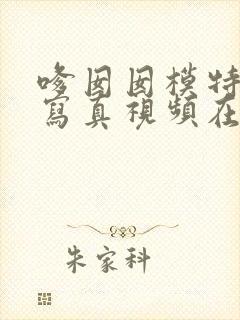 嗲囡囡模特
寫真視頻在
朱家科